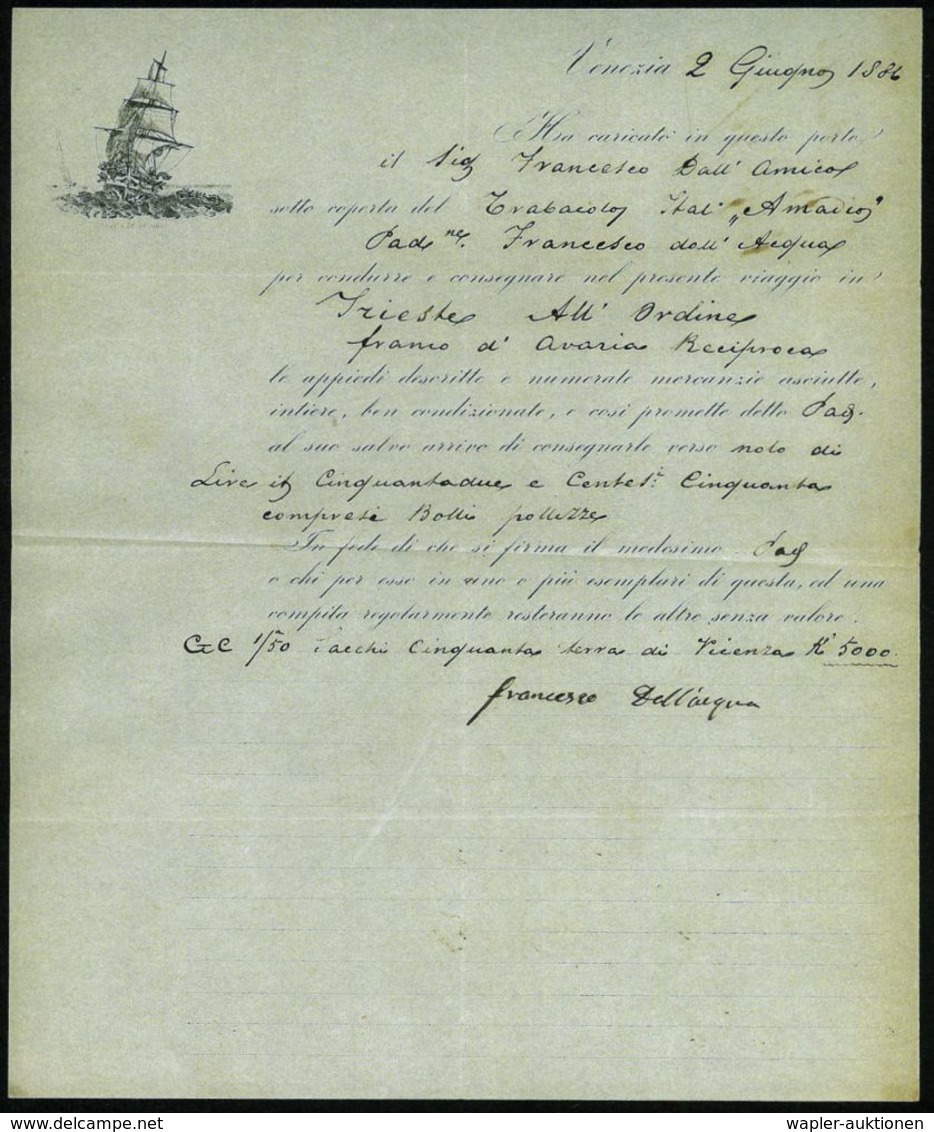 Venezia 2 Giugno 1886
Ha caricato in questo porto
il Sig Francesco Dall' Amico
sotto coperta del Trabacolo Ital' „Amadio"
Pad.ne Francesco dall' Acqua
per condurre e consegnare nel presente viaggio in
Trieste All' Ordine
franco d' Avaria Reciproca
le appiedi descritte e numerate mercanzie asciutte,
intiere, ben condizionate, e così promette detto Pad.
al suo salvo arrivo di consegnarle verso nolo di
Lire it Cinquantadue e Centes: Cinquanta
compresi Bolli polizze
In fede di che si firma il medesimo Pad
o chi per esso in uno o più esemplari di questa, ed una
compita regolarmente resteranno le altre senza valore.
GC 1/50 Sacchi Cinquanta terra di Vicenza K' 5000.
francesco Dell'acqua
wapler-auktionen